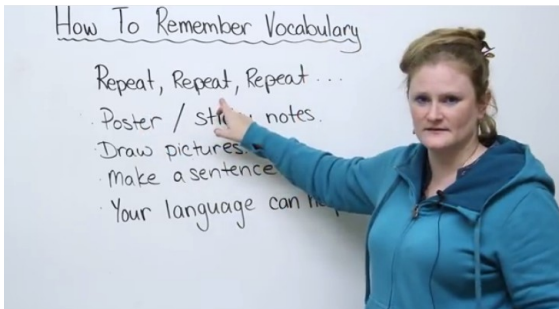 How To Remember Vocabulary
Repeat, Repeat, Repeat...
· Poster / notes.
· Draw pictures.
· Make a sentence
· Your language can